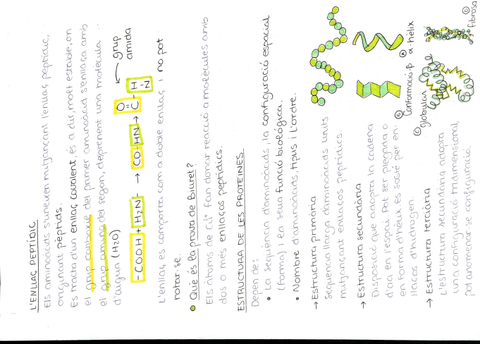 L'ENLLAÇ PEPTÍDIC
Els aminoàcids s'uneixen mitjançant l'enllaç peptídic,
originant pèptids.
Es tracta d'un enllaç covalent és a dir, molt estable en
el grup carboxil del primer aminoàcid s'enllaça amb
el grup amina del segon, desprenent una molècula
d'aigua (H2O)
grup
amida
-COOH + H2N → CO-HN →
O H
C - N
L'enllaç es comporta com a doble enllaç i no pot
rotar se
• Què és la prova de Biuret?
Els àtoms de Cu²⁺ fan donar reacció a molècules amb
dos o més enllaços peptídics
ESTRUCTURA DE LES PROTEÏNES.
Depèn de:
• La seqüència d'aminoàcids, la configuració espacial
(forma) i en seva funció biològica.
• Nombre d'aminoàcids, tipus i l'ordre.
→ Estructura primària
Seqüència llarga d'aminoàcids units
mitjançant enllaços peptídics
→ Estructura secundària
Disposició que adopta la cadena
d'aa en l'espai. Pot ser plegada o
en forma d'hèlix es estable per en-
llaços d'hidrogen
→ Estructura terciària
L'estructura secundària adopta
una configuració tridimensional,
pot anomenar se configuració
Conformació-β
α-hèlix
globular
fibrosa